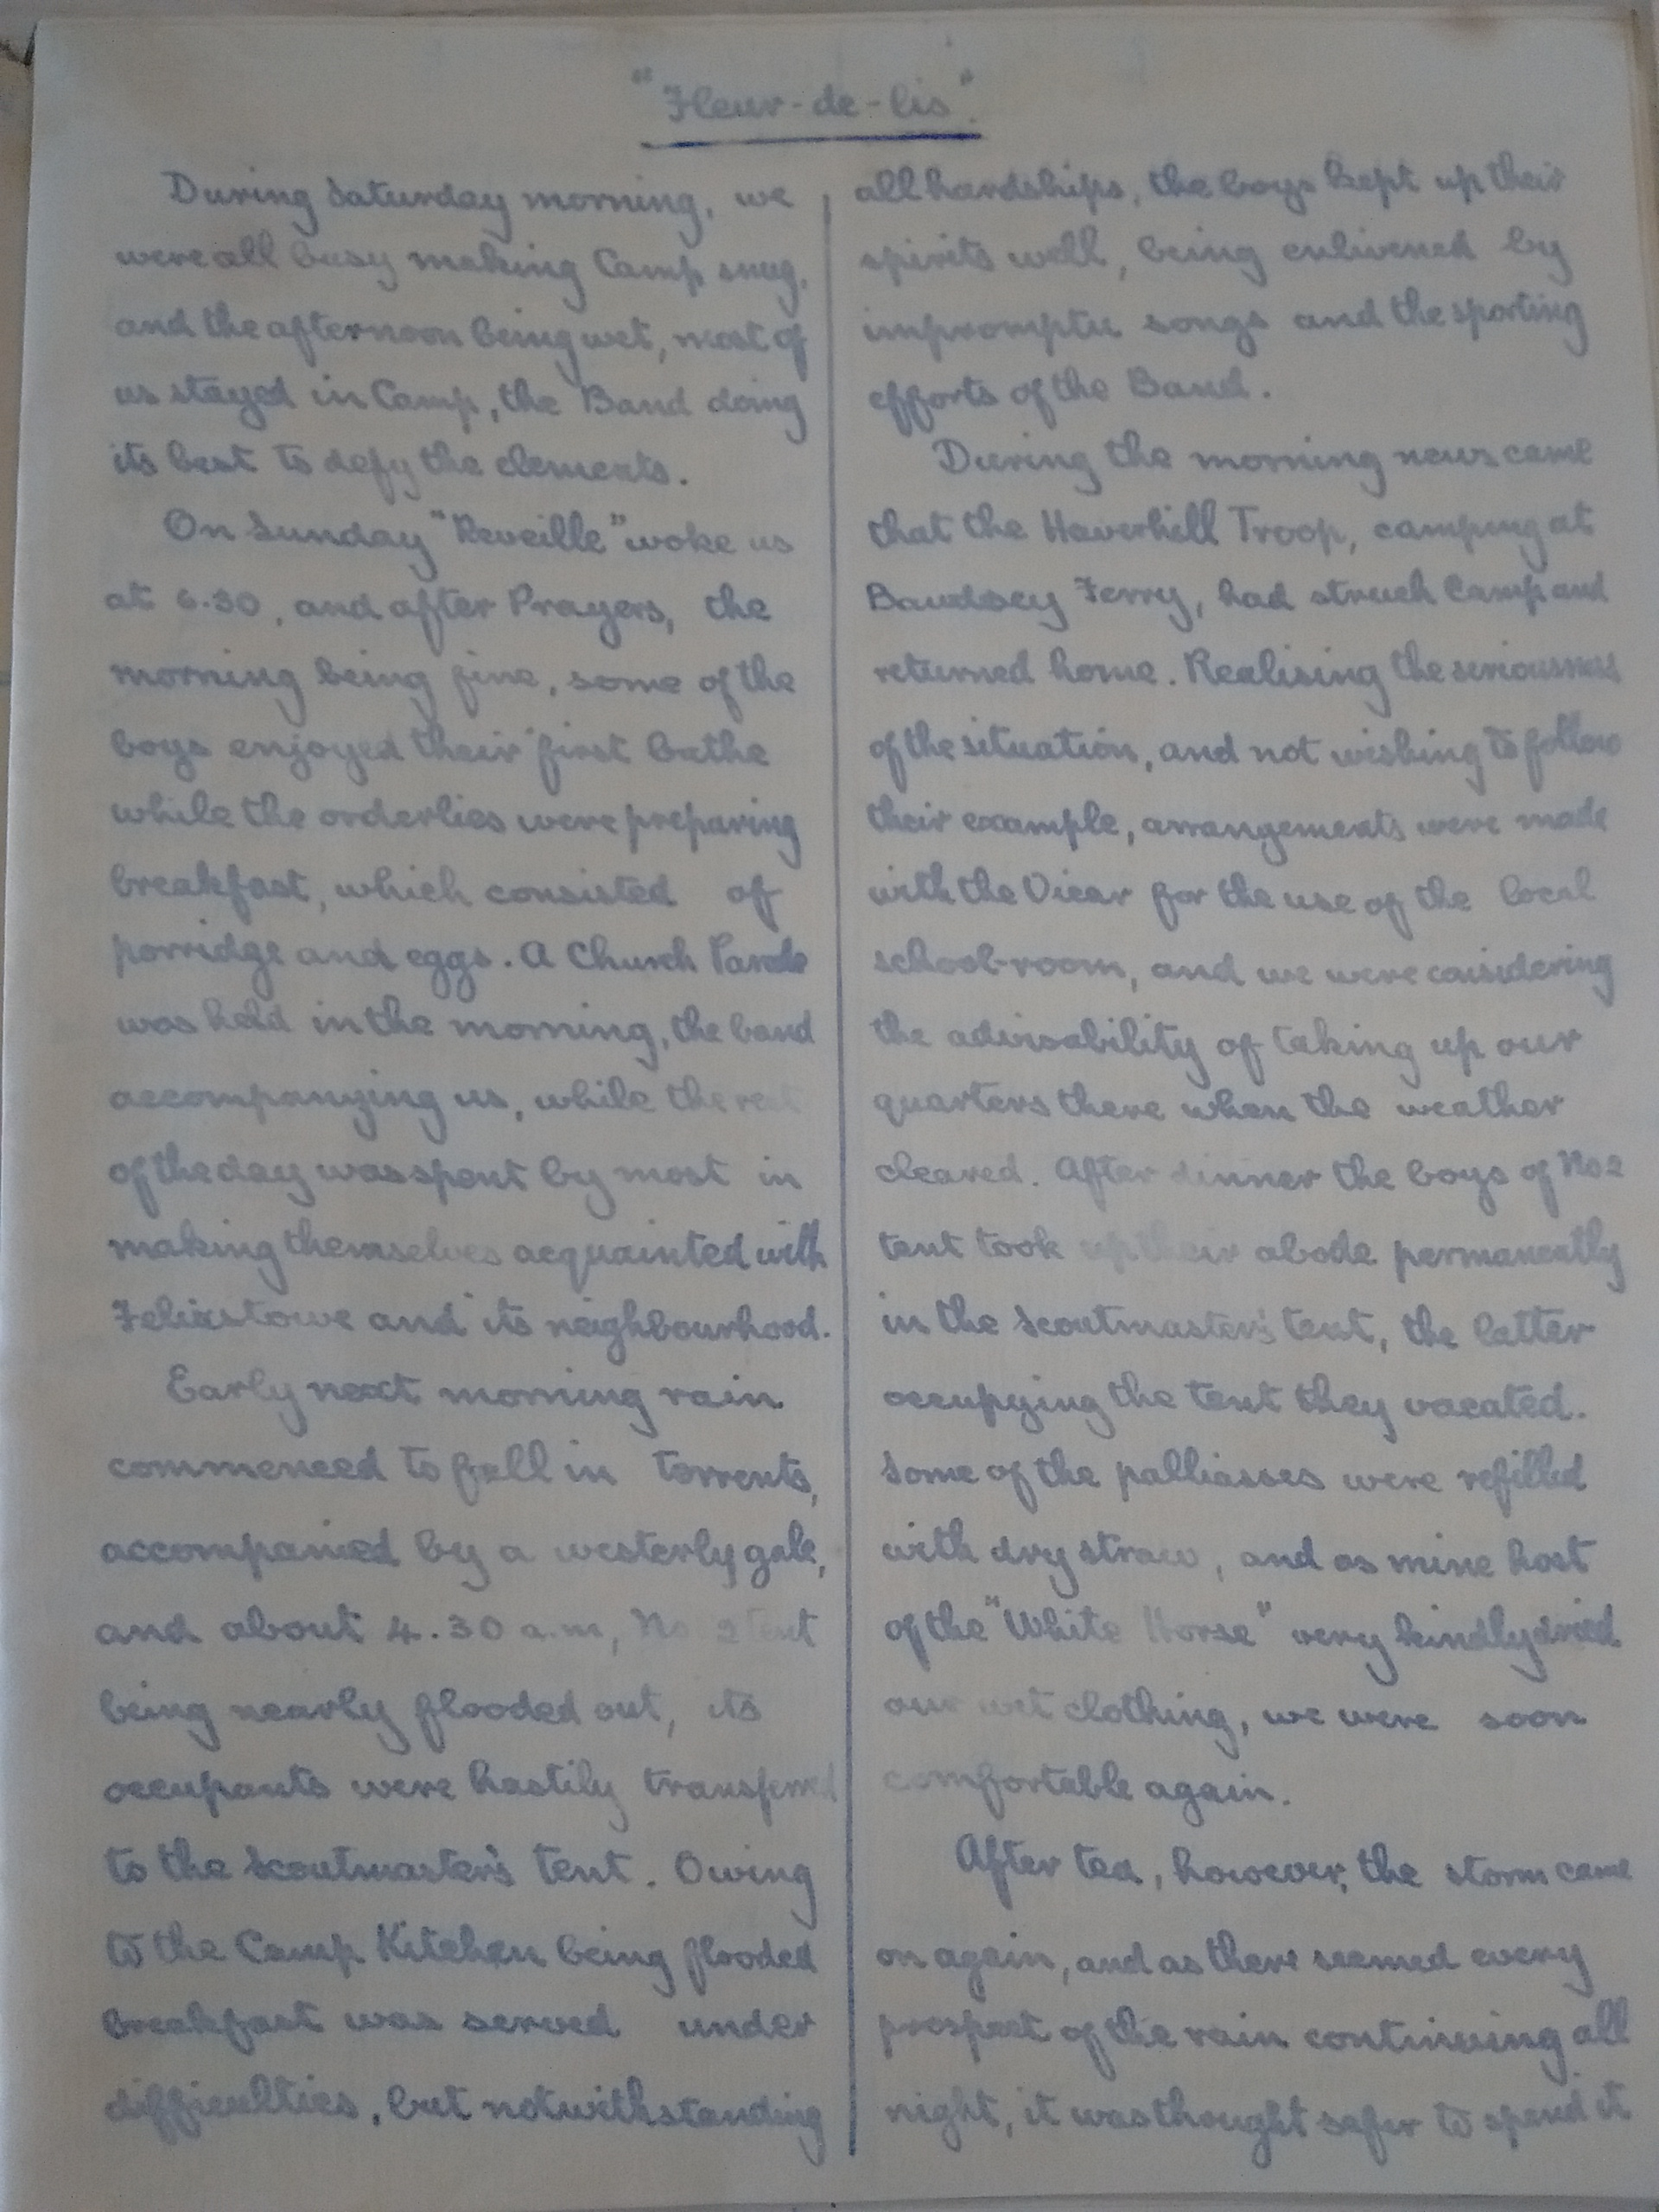 "Fleur-de-lis".
During Saturday morning, we
were all busy making Camp snug,
and the afternoon being wet, most of
us stayed in Camp, the Band doing
its best to defy the elements.
On Sunday "Reveille" woke us
at 6.30, and after Prayers, the
morning being fine, some of the
boys enjoyed their first bathe
while the orderlies were preparing
breakfast, which consisted of
porridge and eggs. A Church Parade
was held in the morning, the band
accompanying us, while the rest
of the day was spent by most in
making themselves acquainted with
Felixstowe and its neighbourhood.
Early next morning rain
commenced to fall in torrents,
accompanied by a westerly gale,
and about 4.30 a.m, No 2 tent
being nearly flooded out, its
occupants were hastily transferred
to the Scoutmaster's tent. Owing
to the Camp Kitchen being flooded
breakfast was served under
difficulties, but notwithstanding
all hardships, the boys kept up their
spirits well, being enlivened by
impromptu songs and the sporting
efforts of the Band.
During the morning news came
that the Haverhill Troop, camping at
Bawdsey Ferry, had struck Camp and
returned home. Realising the seriousness
of the situation, and not wishing to follow
their example, arrangements were made
with the Vicar for the use of the local
school-room, and we were considering
the advisability of taking up our
quarters there when the weather
cleared. After dinner the boys of No 2
tent took up their abode permanently
in the Scoutmaster's tent, the latter
occupying the tent they vacated.
Some of the palliasses were refilled
with dry straw, and as mine host
of the "White Horse" very kindly dried
our wet clothing, we were soon
comfortable again.
After tea, however, the storm came
on again, and as there seemed every
prospect of the rain continuing all
night, it was thought safer to spend it